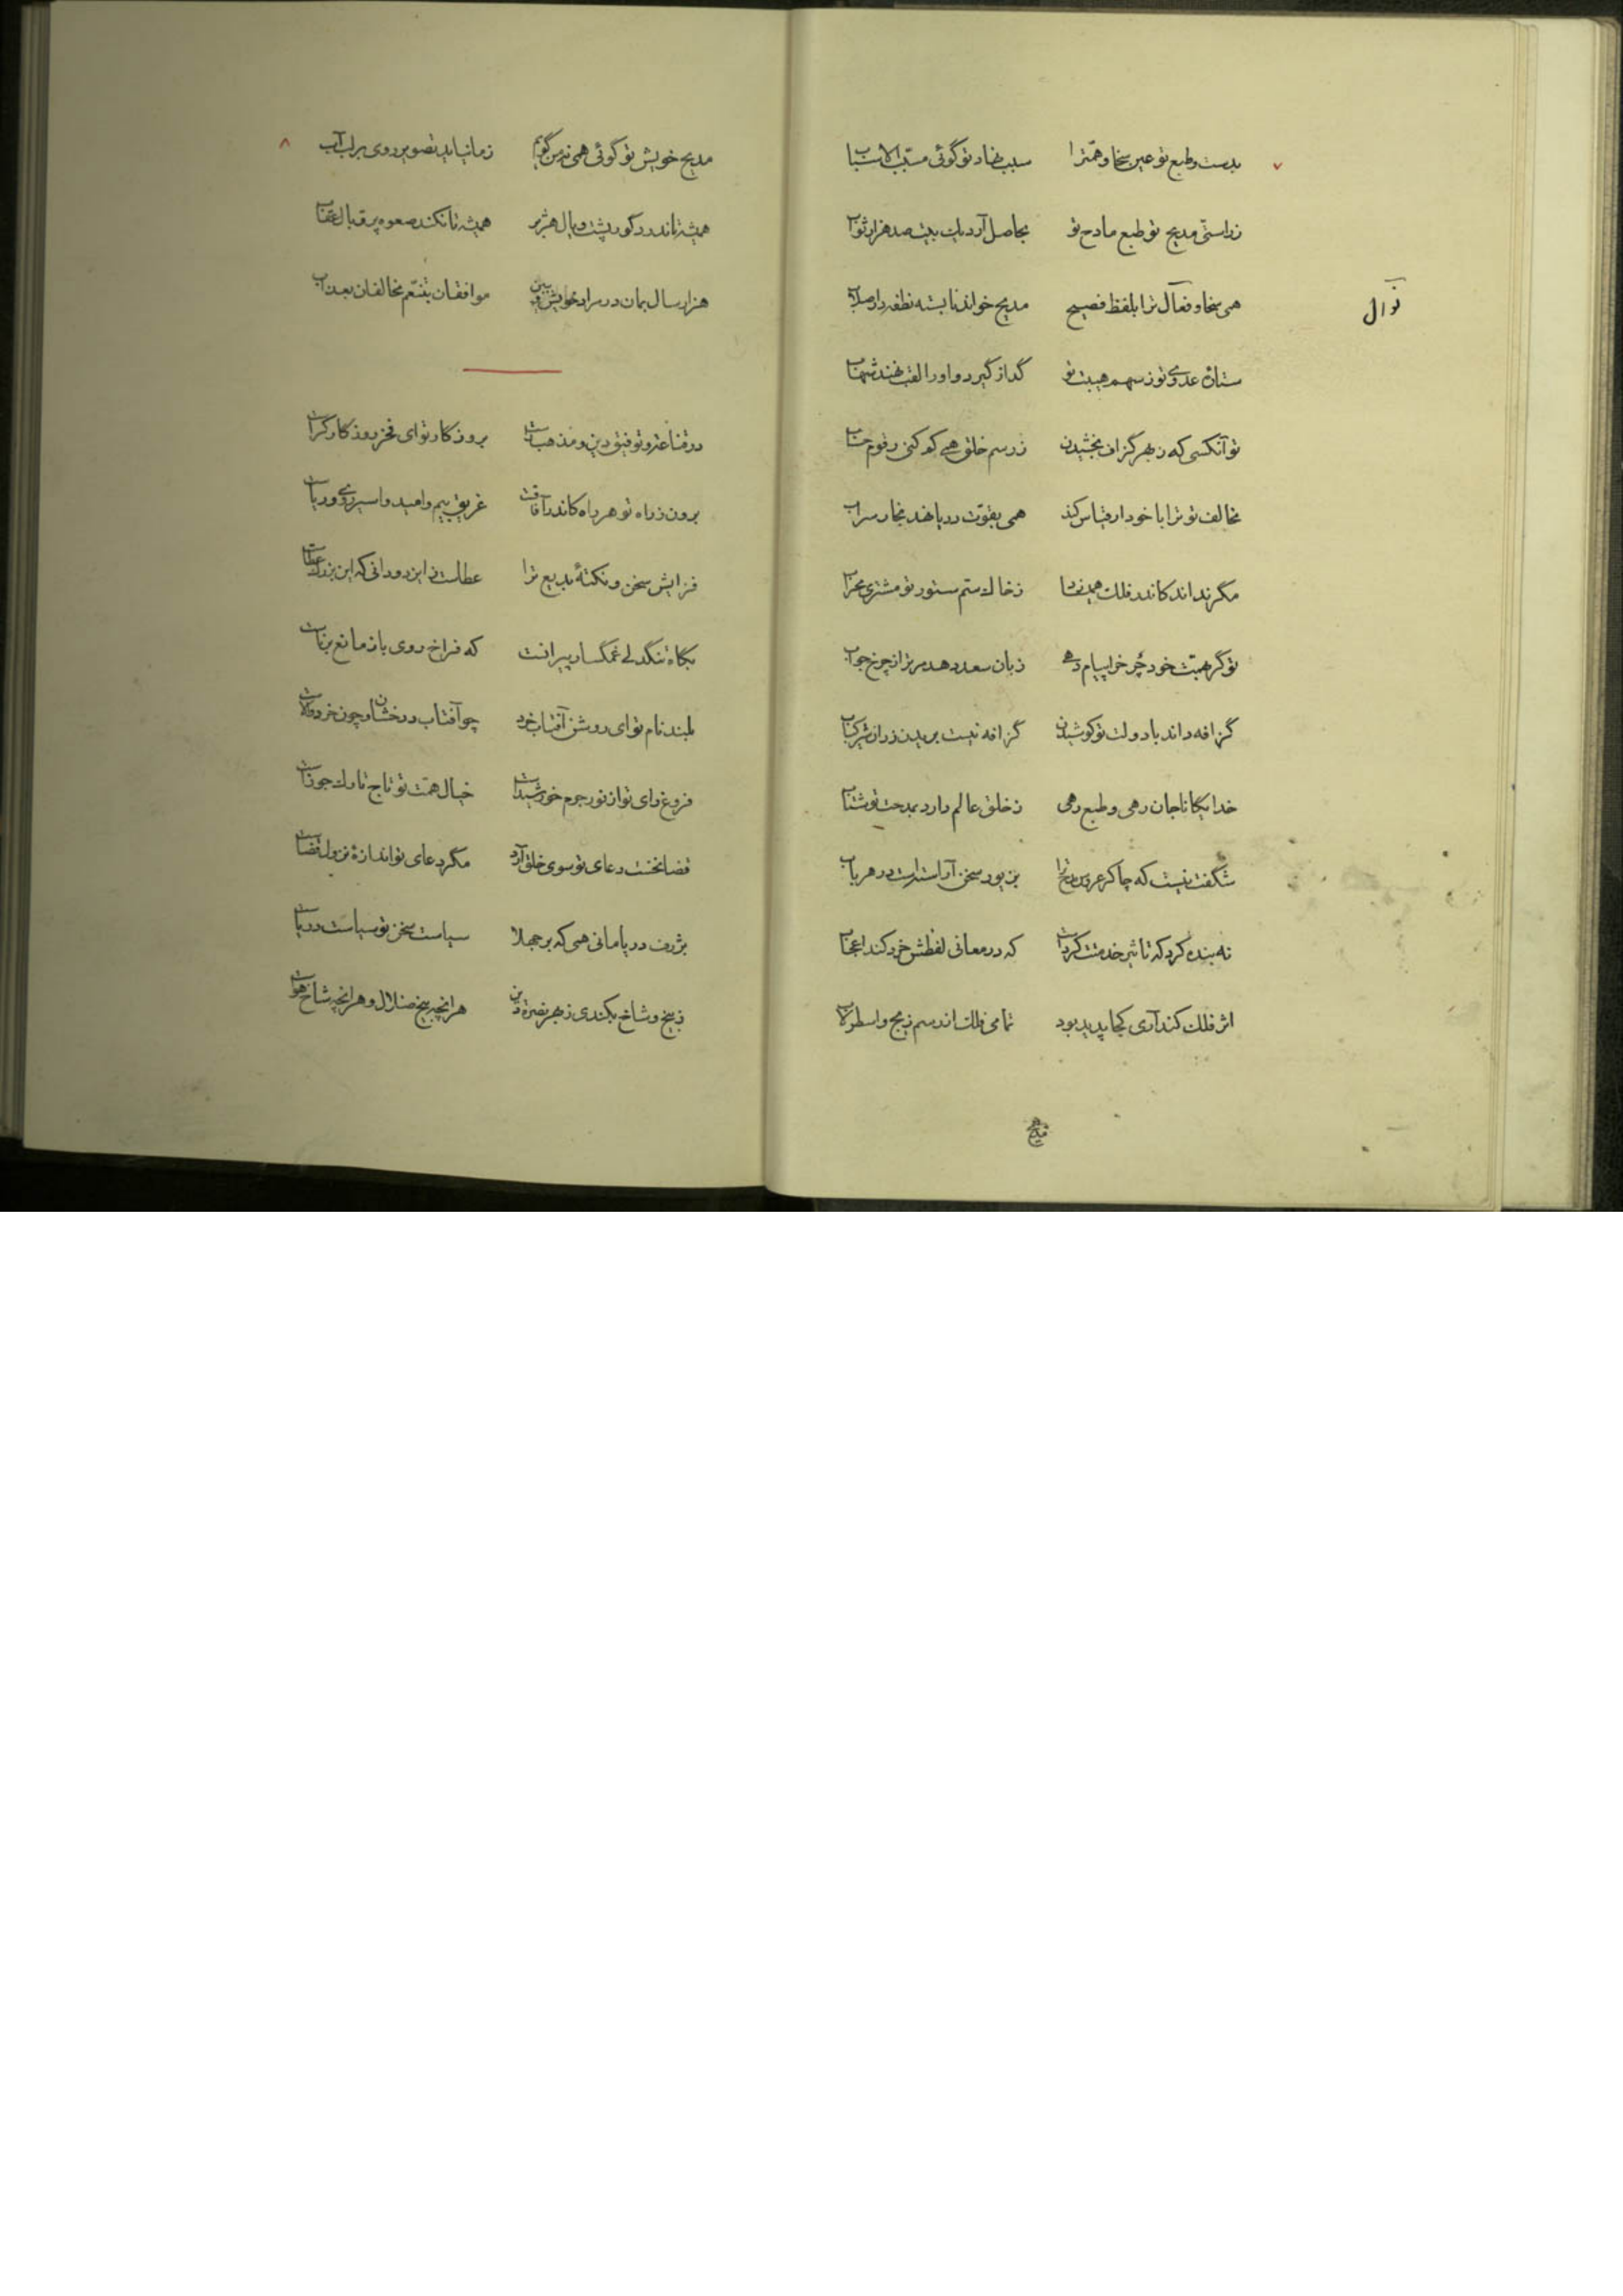 بدست و طبع تو عین سخا و همّترا سبب نهاد تو گوئی مسبّب الاسباب
ز راستی مدیح تو طبع مادح تو بحاصل آرد بیت صد هزار ثواب
نوال
همی سخا و فعال ترا بلفظ فصیح مدیح خواند نابسته نطفه در اصلاب
ستارۀ عدوی تو ز سهم هیبت تو گداز گیرد و او را لقب نهند شهاب
تو آنکسی که ز بهر گزاف بخشیدن ز رسم خلق همی کم کنی رقوم حساب
مخالف تو ترا با خود ار قیاس کند همی بقوّت دریا نهد بخار سراب
مگر نداند کاندر فلک ز خاک ستم ستور تو مشتری محراب
تو گر همّت خود چرخ را پیام دهی زبان سعد دهد مر ترا ز چرخ جواب
گزافه داند با دولت تو کوشیدن گزافه نیست
خدایگانا جان رهی و طبع رهی ز خلق عالم دارد بمدحت تو شتاب
شگفت نیست که چاکر عروس مدح ترا بزیور سخن آراستست در هر باب
نه بنده کرد که تاثیر خدمتت کردست که در معانی لفظش خرد کند اعجاب
اثر فلک کند آری کجا پدید بود تمامی فلک اندر سم زیج و اسطرلاب
مدیح
مدیح خویش تو گوئی همی ز من گویم ز ما نیاید تصویر روی بر لب آب
همیشه تا ندرد گور پشت و یال هژبر همیشه تا نکند صعوه پر و بال عقاب
هزار سال بمان در مراد خویش و ببین موافقان بتنعّم مخالفان بعذاب
در قناعت و توفیق دین و مذهب راست بروزگار تو ای فخر روزگار کراست
برون ز راه تو هر راه کاندر آفاقست غریق بیم و امید و اسیر روی و ریاست
فزایش سخن و نکتۀ بدیع ترا عطاست ز ایزد و دانی که این بزرگ عطاست
بگاه تنگدلی غمگسار پیرانت که فراخ روی باز مانع برناست
بلند نام تو ای روشن آفتاب خرد چو آفتاب درخشان و چون خرد والاست
فروغ رای تو از نور جرم خورشیدست خیال همّت تو تاج تارک جوزاست
قضا نخست دعای تو سوی خلق آرد مگر دعای تو اندازۀ نزول قضاست
بژرف دریا مانی همی که بر جهلا سیاست سخن تو سیاست دریاست
ز بیخ و شاخ بکندی ز بهر نصرة دین هر انچه بیخ ضلال و هر انچه شاخ هواست